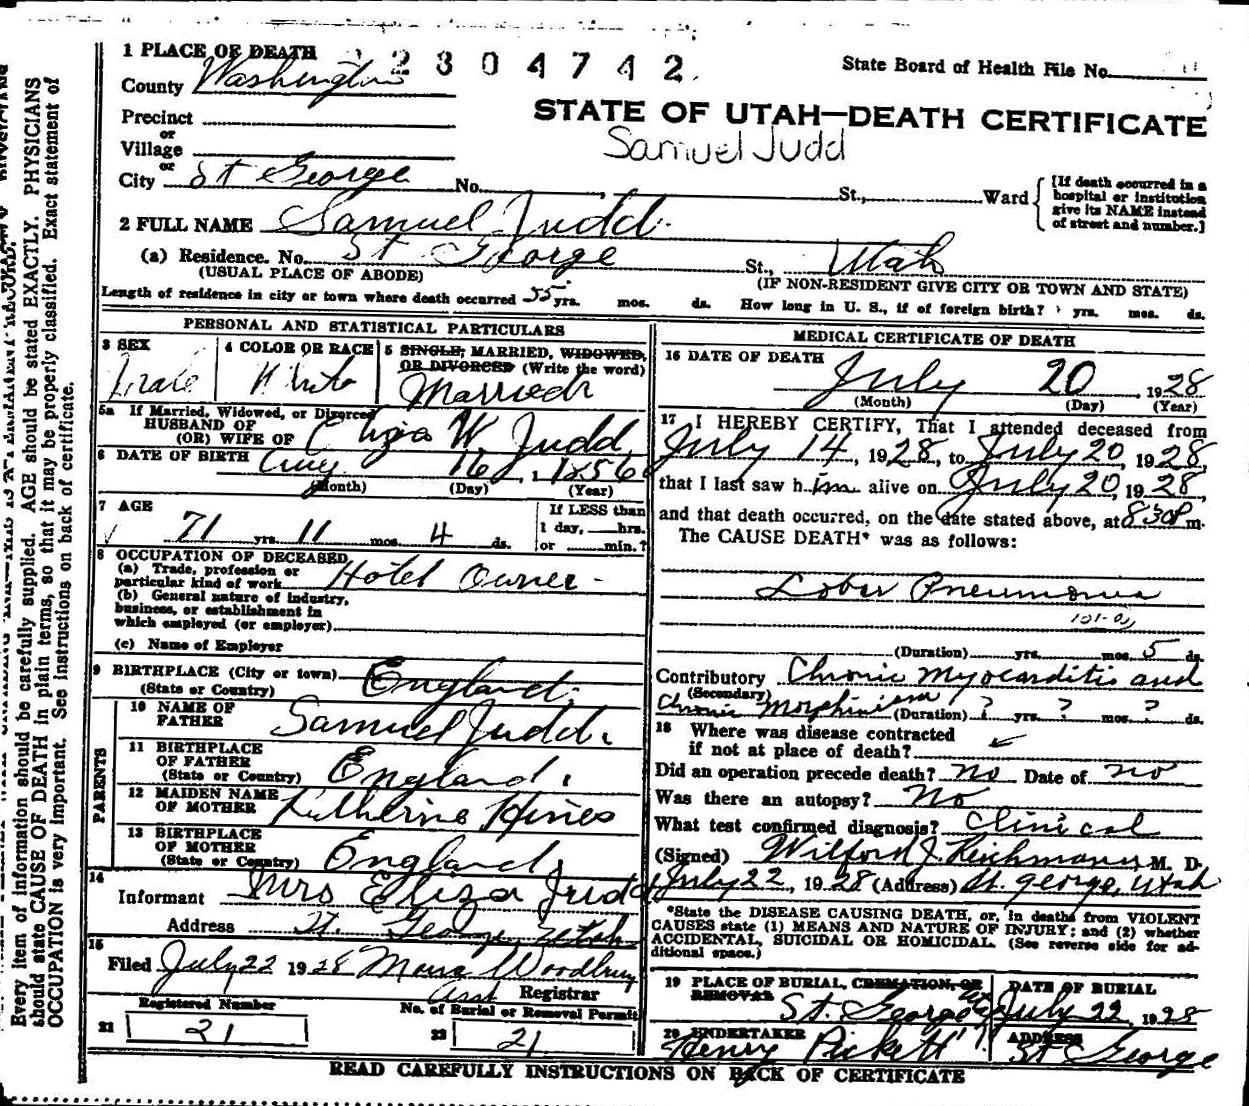 1 PLACE OF DEATH 2304742
State Board of Health File No.
County Washington
STATE OF UTAH—DEATH CERTIFICATE
Samuel Judd
Precinct
or
Village
or
City St George No. St., Ward
[If death occurred in a hospital or institution give its NAME instead of street and number.]
2 FULL NAME Samuel Judd.
(a) Residence. No. St George St., Utah
(USUAL PLACE OF ABODE) (IF NON-RESIDENT GIVE CITY OR TOWN AND STATE)
Length of residence in city or town where death occurred 55 yrs. mos. ds. How long in U. S., if of foreign birth? yrs. mos. ds.
PERSONAL AND STATISTICAL PARTICULARS
3 SEX
Male
4 COLOR OR RACE
White
5 SINGLE, MARRIED, WIDOWED,
OR DIVORCED (Write the word)
Married
5a If Married, Widowed, or Divorced
HUSBAND OF
(OR) WIFE OF Eliza W Judd
6 DATE OF BIRTH Aug 16, 1856
(Month) (Day) (Year)
7 AGE
71 yrs. 11 mos. 4 ds.
If LESS than
1 day, hrs.
or min.?
8 OCCUPATION OF DECEASED
(a) Trade, profession or
particular kind of work Hotel Owner
(b) General nature of industry,
business, or establishment in
which employed (or employer)
(c) Name of Employer
9 BIRTHPLACE (City or town)
(State or Country) England.
PARENTS
10 NAME OF
FATHER Samuel Judd.
11 BIRTHPLACE
OF FATHER
(State or Country) England.
12 MAIDEN NAME
OF MOTHER Katherine Hines
13 BIRTHPLACE
OF MOTHER
(State or Country) England
14
Informant Mrs Eliza Judd
Address St. George Utah
15
Filed July 22 1928 Woodbury
Asst Registrar
Registered Number
21 21
No. of Burial or Removal Permit
22 21
MEDICAL CERTIFICATE OF DEATH
16 DATE OF DEATH
July 20, 1928
(Month) (Day) (Year)
17 I HEREBY CERTIFY, That I attended deceased from
July 14, 1928, to July 20, 1928,
that I last saw him alive on July 20, 1928,
and that death occurred, on the date stated above, at 830P m.
The CAUSE DEATH* was as follows:
Lobar Pneumonia
101-a
(Duration) yrs. mos. 5 ds.
Contributory Chronic Myocarditis and
(Secondary)
Chronic Morphinism (Duration) ? yrs. ? mos. ? ds.
18 Where was disease contracted
if not at place of death? ✓
Did an operation precede death? no Date of no
Was there an autopsy? No
What test confirmed diagnosis? Clinical
(Signed) Wilford J. Reichmann, M. D.
July 22, 1928 (Address) St. George, Utah
*State the DISEASE CAUSING DEATH, or, in deaths from VIOLENT
CAUSES state (1) MEANS AND NATURE OF INJURY; and (2) whether
ACCIDENTAL, SUICIDAL OR HOMICIDAL. (See reverse side for ad-
ditional space.)
19 PLACE OF BURIAL, CREMATION, OR
REMOVAL St. George
DATE OF BURIAL
July 22, 1928
20 UNDERTAKER
Henry Pickett
ADDRESS
St George
READ CAREFULLY INSTRUCTIONS ON BACK OF CERTIFICATE
Every item of information should be carefully supplied. AGE should be stated EXACTLY. PHYSICIANS
should state CAUSE OF DEATH in plain terms, so that it may be properly classified. Exact statement of
OCCUPATION is very important. See instructions on back of certificate.